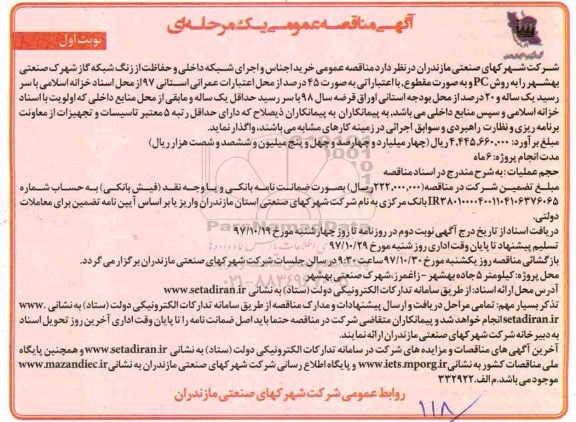 آگهی مناقصه عمومی یک مرحله‌ای
نوبت اول
شرکت شهرکهای صنعتی مازندران در نظر دارد مناقصه عمومی خرید اجناس و اجرای شبکه داخلی و حفاظت از زنگ شبکه گاز شهرک صنعتی
بهشهر را به روش PC و به صورت مقطوع، با اعتباراتی به صورت ۴۵ درصد از محل اعتبارات عمرانی استانی ۹۷ از محل اسناد خزانه اسلامی با سر
رسید یک ساله و ۲۰ درصد از محل بودجه استانی اوراق قرضه سال ۹۸ با سر رسید حداقل یک ساله و مابقی از محل منابع داخلی که اولویت با اسناد
خزانه اسلامی و سپس منابع داخلی می باشد، به پیمانکاران به پیمانکاران ذیصلاح که دارای حداقل رتبه ۵ معتبر تاسیسات و تجهیزات از معاونت
برنامه ریزی و نظارت راهبردی و سوابق اجرائی در زمینه کارهای مشابه می باشند، واگذار نماید.
مبلغ برآورد: ۴,۴۴۵,۶۶۰,۰۰۰ ریال (چهار میلیارد و چهارصد و چهل و پنج میلیون و ششصد و شصت هزار ریال)
مدت انجام پروژه: ۶ ماه
حجم عملیات: به شرح مندرج در اسناد مناقصه
مبلغ تضمین شرکت در مناقصه (۲۲۲,۰۰۰,۰۰۰ ریال) بصورت ضمانت نامه بانکی و یا وجه نقد (فیش بانکی) به حساب شماره
IR۳۸۰۱۰۰۰۰۴۰۰۱۱۰۴۱۰۶۳۷۶۰۶۵ بانک مرکزی به نام شرکت شهرکهای صنعتی استان مازندران واریز یا بر اساس آیین نامه تضمین برای معاملات
دولتی.
دریافت اسناد از تاریخ درج آگهی نوبت دوم در روزنامه تا روز چهارشنبه مورخ ۹۷/۱۰/۱۹
تسلیم پیشنهاد تا پایان وقت اداری روز شنبه مورخ ۹۷/۱۰/۲۹
بازگشائی مناقصه روز یکشنبه مورخ ۹۷/۱۰/۳۰ ساعت ۹:۳۰ در سالن جلسات شرکت شهرکهای صنعتی مازندران برگزار می گردد.
محل پروژه: کیلومتر ۵ جاده بهشهر - زاغمرز، شهرک صنعتی بهشهر
آدرس محل ارائه اسناد: از طریق سامانه تدارکات الکترونیکی دولت (ستاد) به نشانی www.setadiran.ir
تذکر بسیار مهم: تمامی مراحل دریافت و ارسال پیشنهادات و مدارک مناقصه از طریق سامانه تدارکات الکترونیکی دولت (ستاد) به نشانی www.
setadiran.ir انجام خواهد شد و پیمانکاران متقاضی شرکت در مناقصه حتما باید اصل ضمانت نامه را تا پایان وقت اداری آخرین روز تحویل اسناد
به دبیرخانه شرکت شهرکهای صنعتی مازندران ارائه نمایند.
آخرین آگهی های مناقصات و مزایده های شرکت در سامانه تدارکات الکترونیکی دولت (ستاد) به نشانی www.setadiran.ir و همچنین پایگاه
ملی مناقصات کشور به نشانی www.iets.mporg.ir و پایگاه اطلاع رسانی شرکت شهرکهای صنعتی مازندران به نشانی www.mazandiec.ir
موجود می باشد. م الف. ۳۳۲۹۲۲
روابط عمومی شرکت شهرکهای صنعتی مازندران
۱۱۸